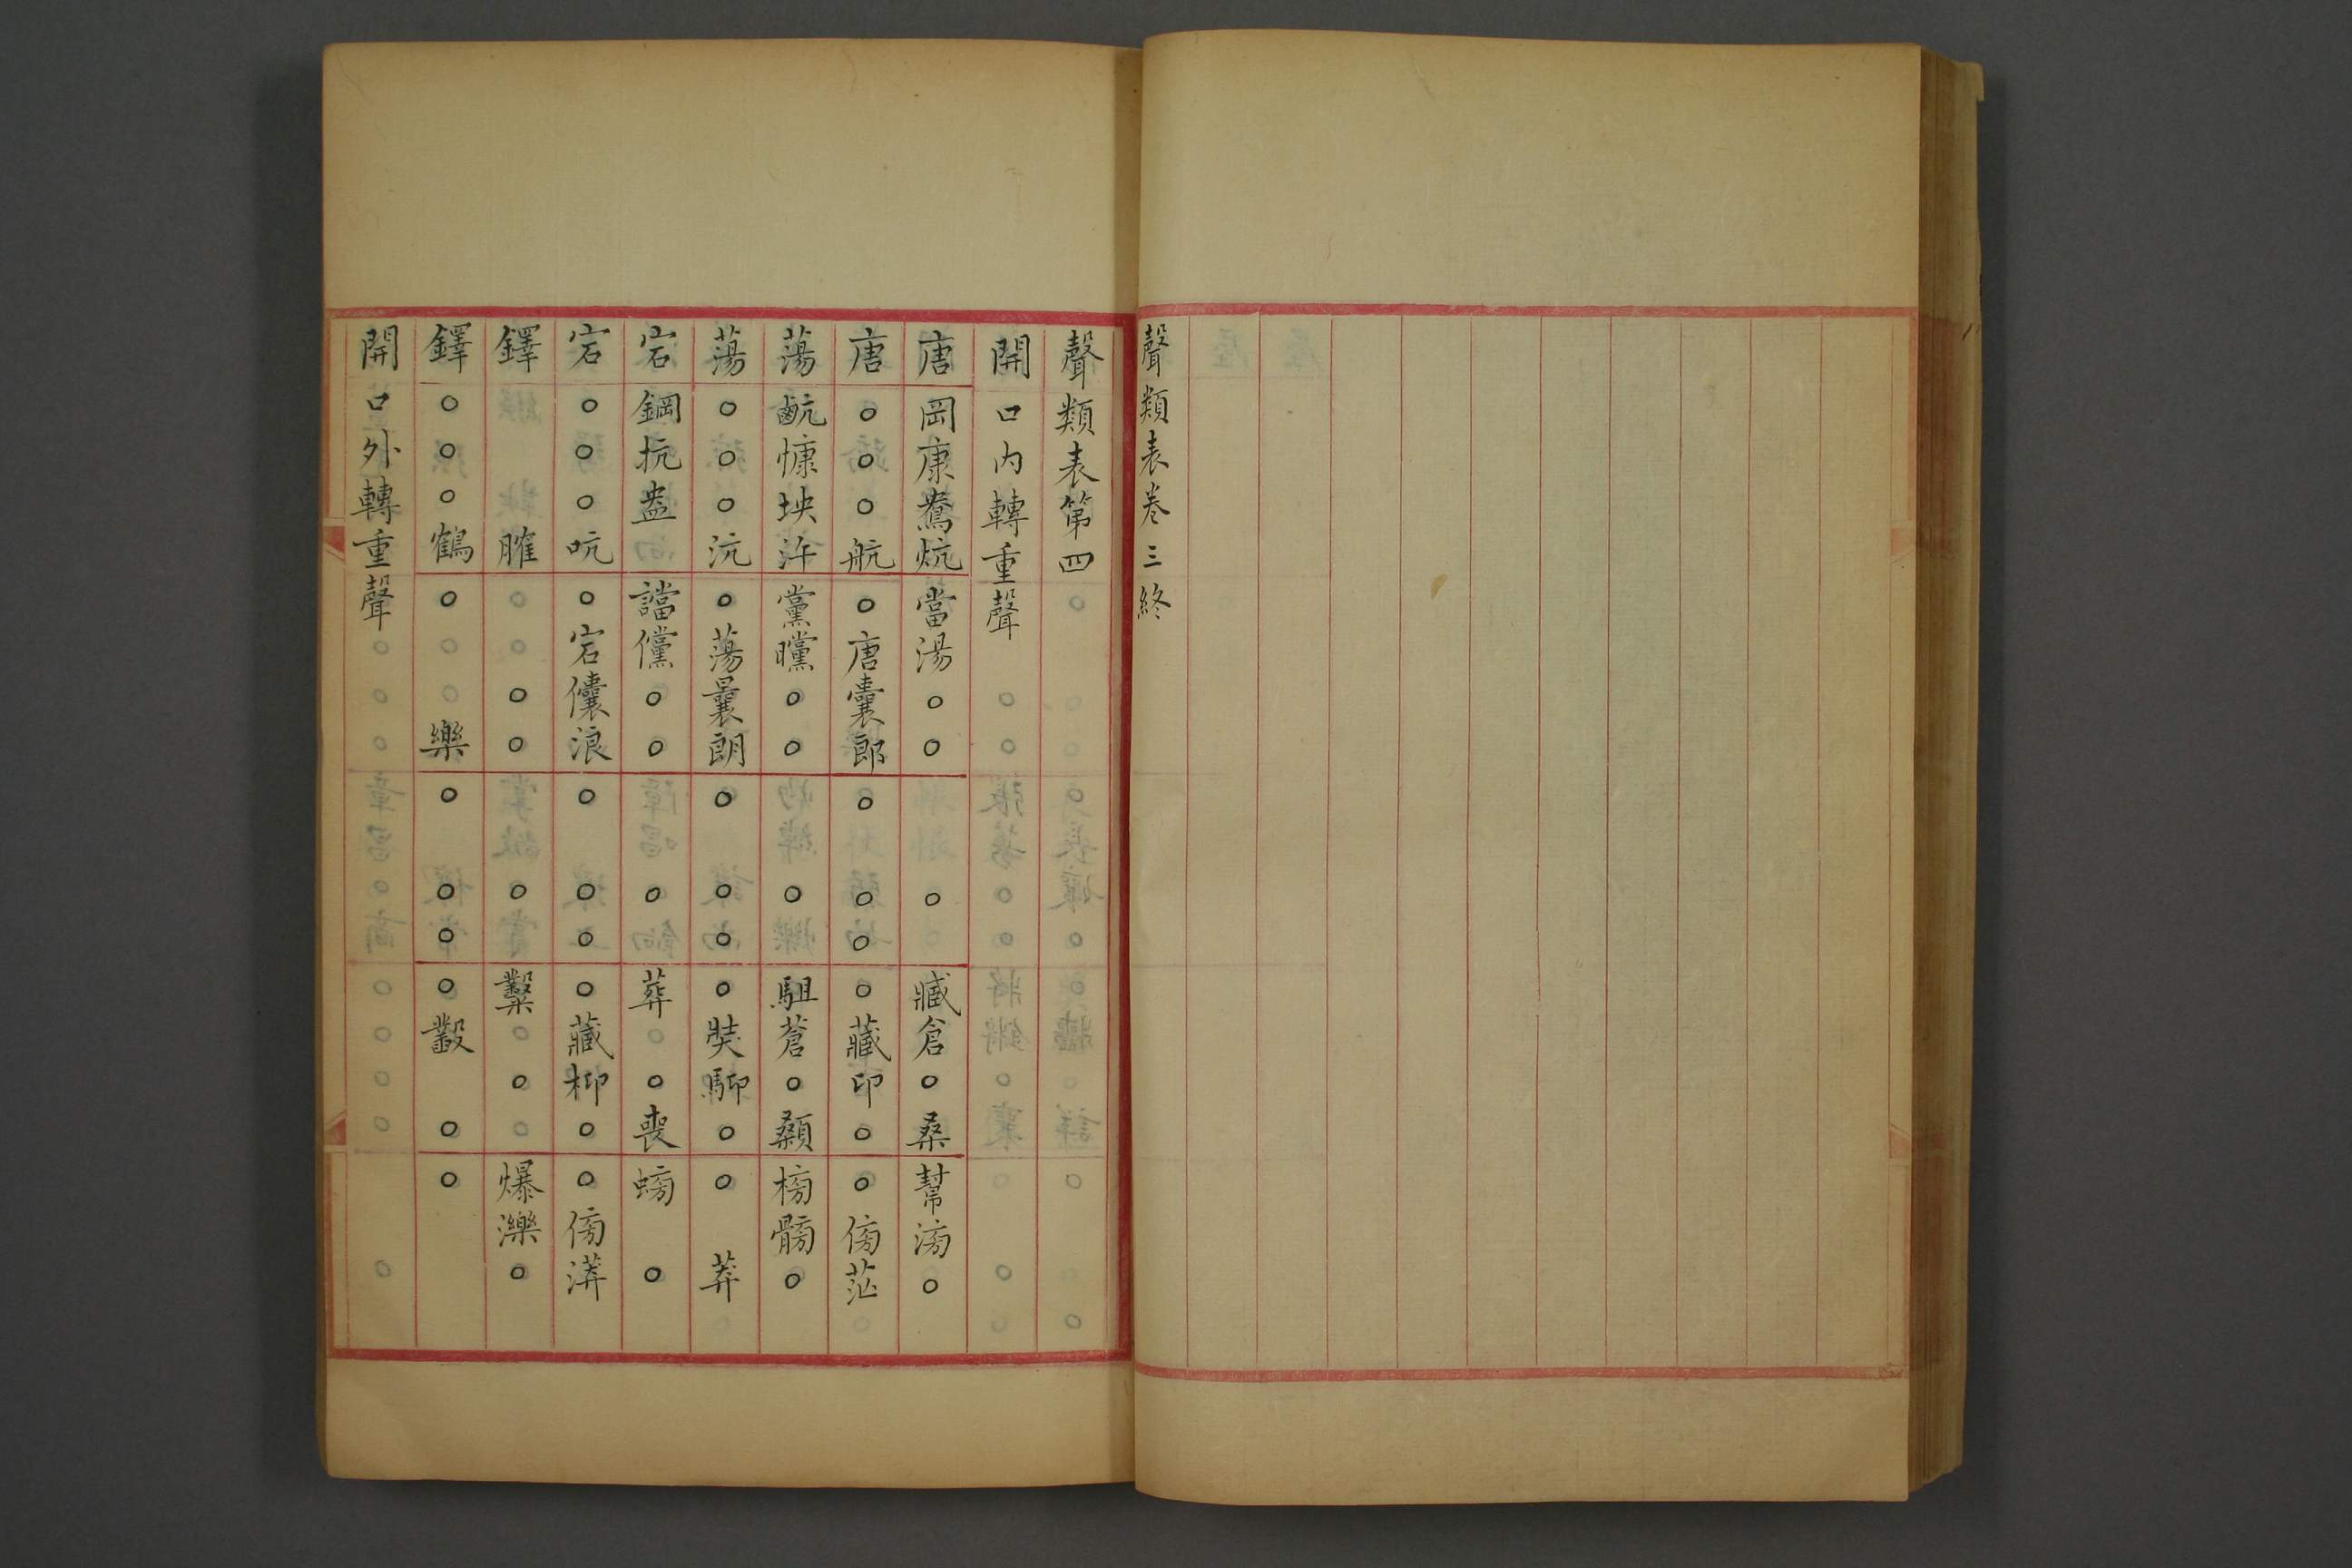 聲類表卷三終
聲類表第四
開口內轉重聲
唐 岡康鴦炕 當湯○○ ○ 臧倉○桑 幫滂○
唐 ○○○航 ○唐囊郎 ○○○ ○藏卬○ ○傍茫
蕩 䴚慷坱汻 黨曭○○ ○ 駔蒼○顙 榜髈○
蕩 ○○○沆 ○蕩曩朗 ○○○ ○奘䭹○ ○莽
宕 鋼抗盎 譡儻○○ ○ 葬○喪 螃○
宕 ○○○吭 ○宕儾浪 ○○○ ○藏枊○ ○傍漭
鐸 脽 ○○ ○ 糳○ 爆濼○
鐸 ○○○鶴 ○樂 ○○○ ○鑿○ ○
開口外轉重聲